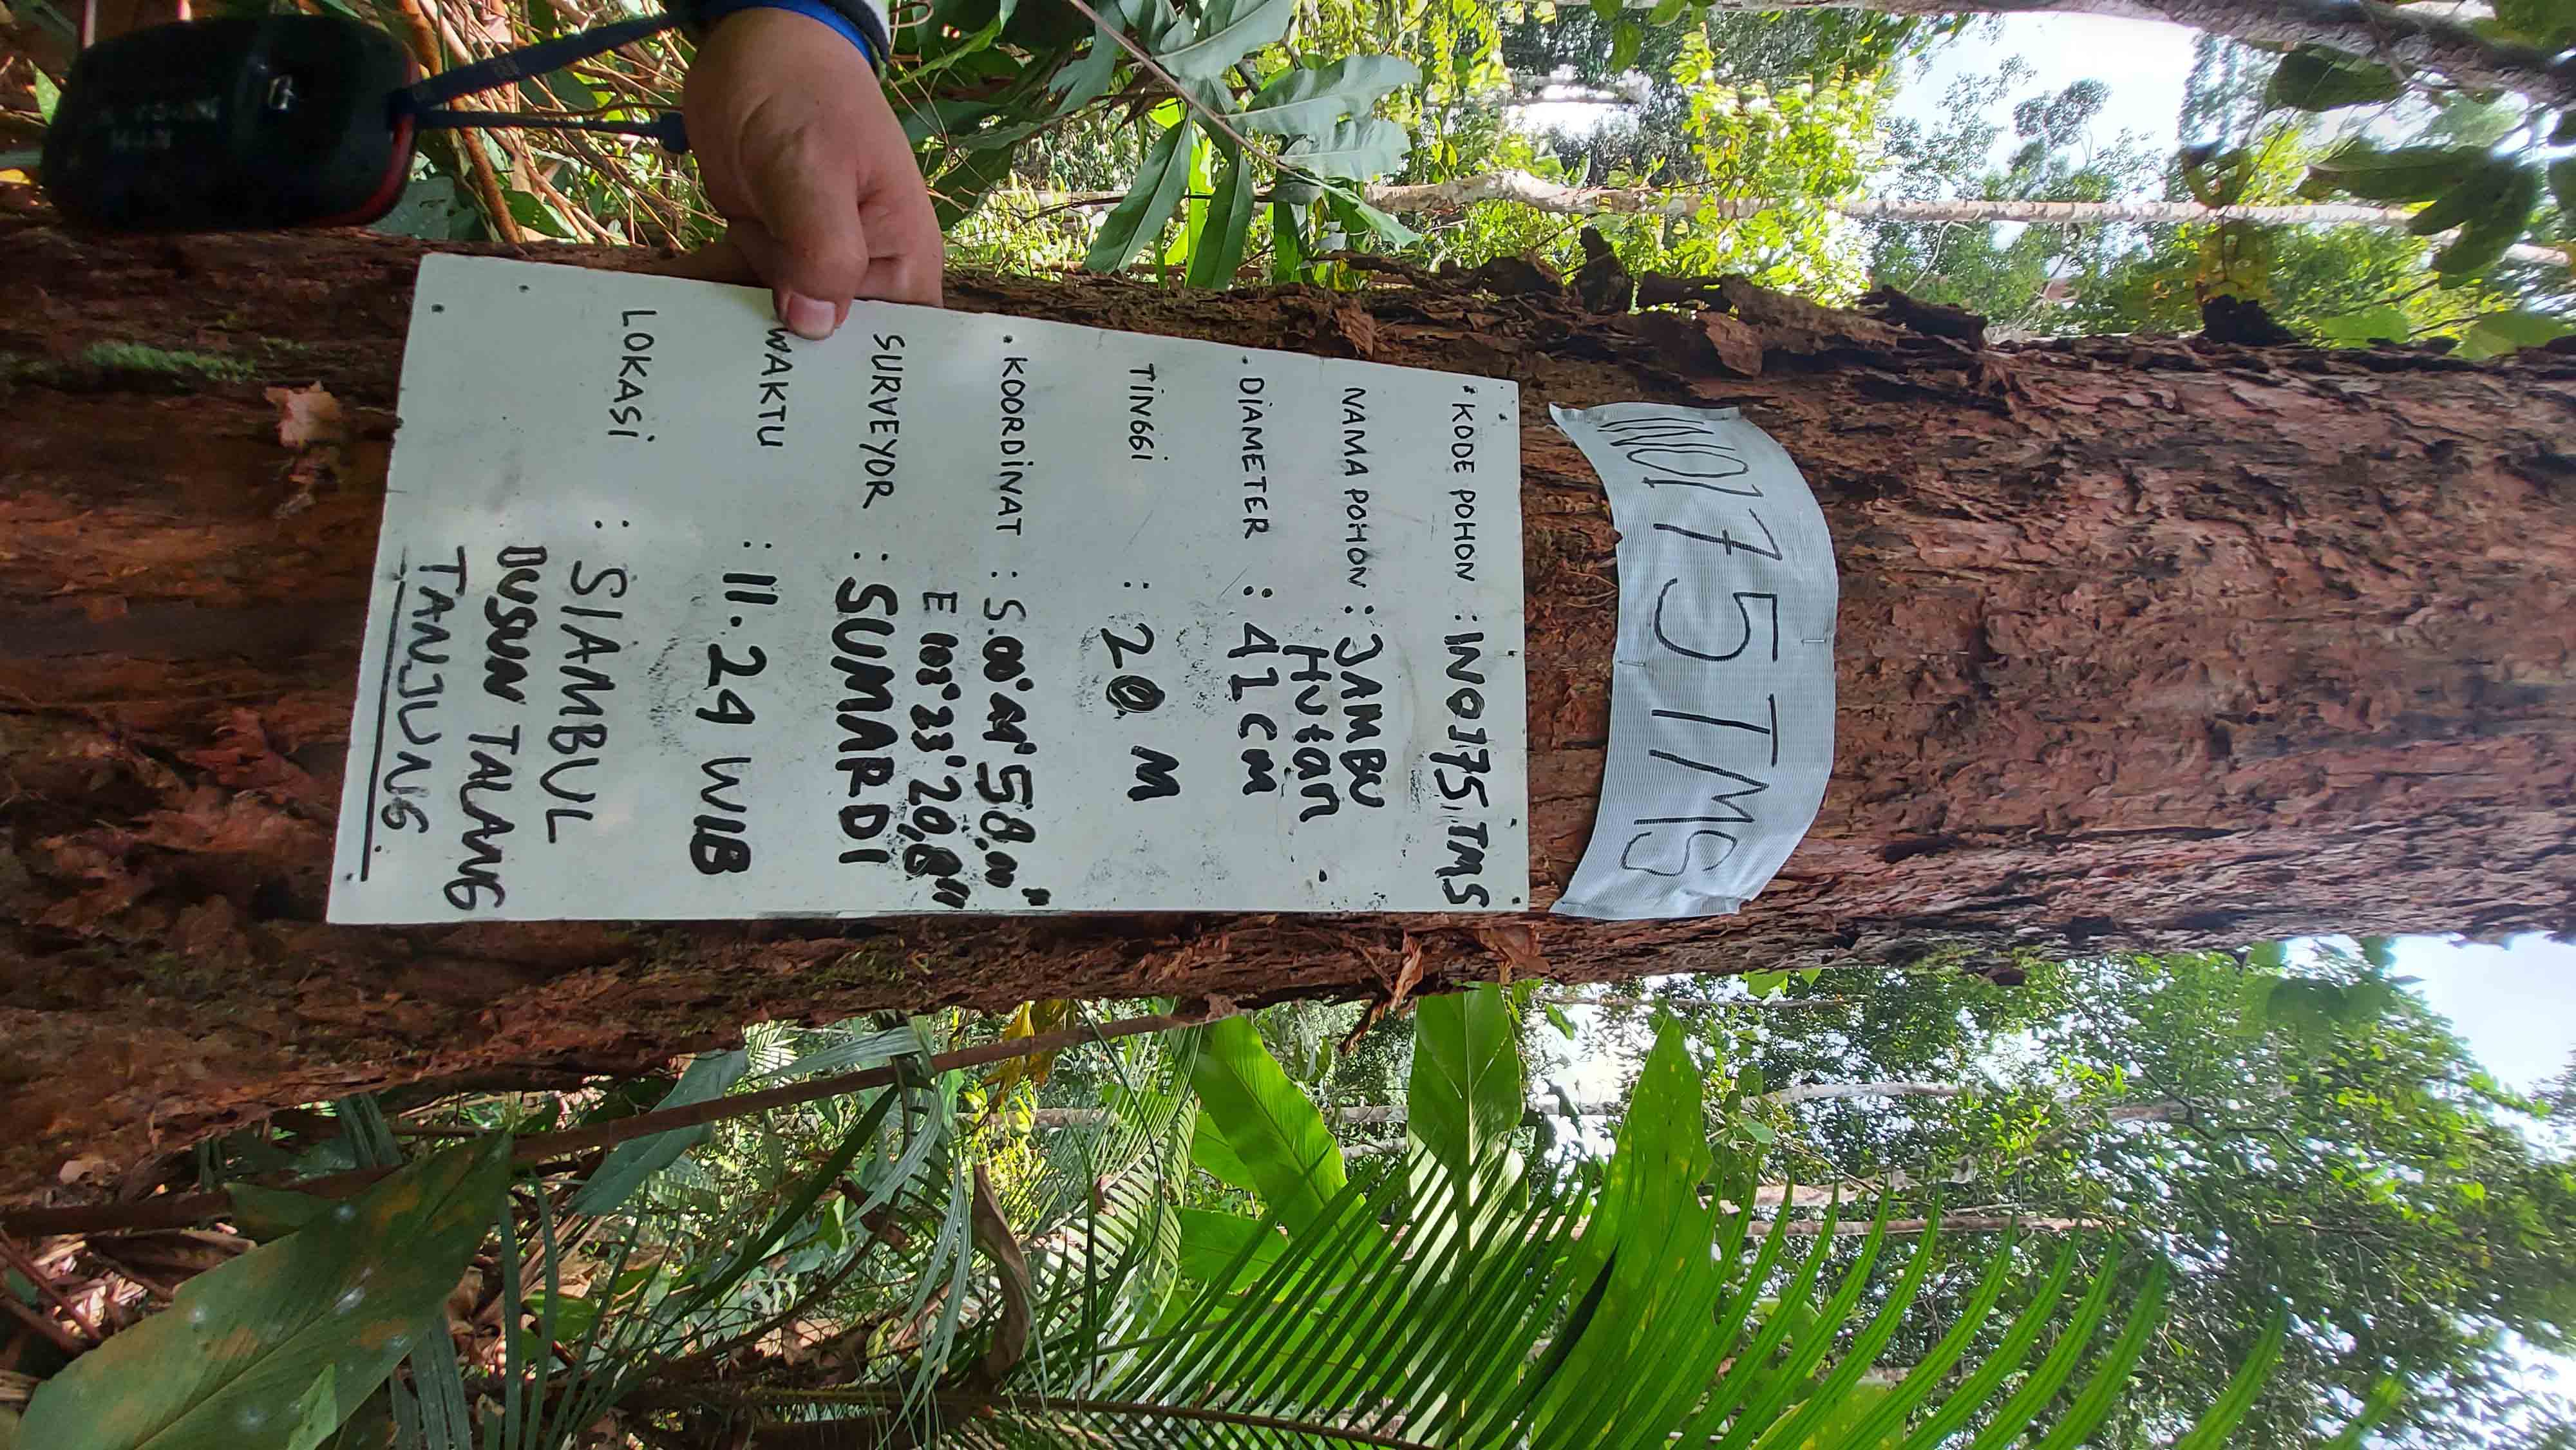 IN0175 TMS
KODE POHON : IN0175 TMS
NAMA POHON : JAMBU
Hutan
DIAMETER : 41 CM
TINGGI : 20 M
KOORDINAT : S.00°44'58,00"
E 102°23'20,8"
SURVEYOR : SUMARDI
WAKTU : 11.24 WIB
LOKASI : SIAMBUL
DUSUN TALANG
TANJUNG.